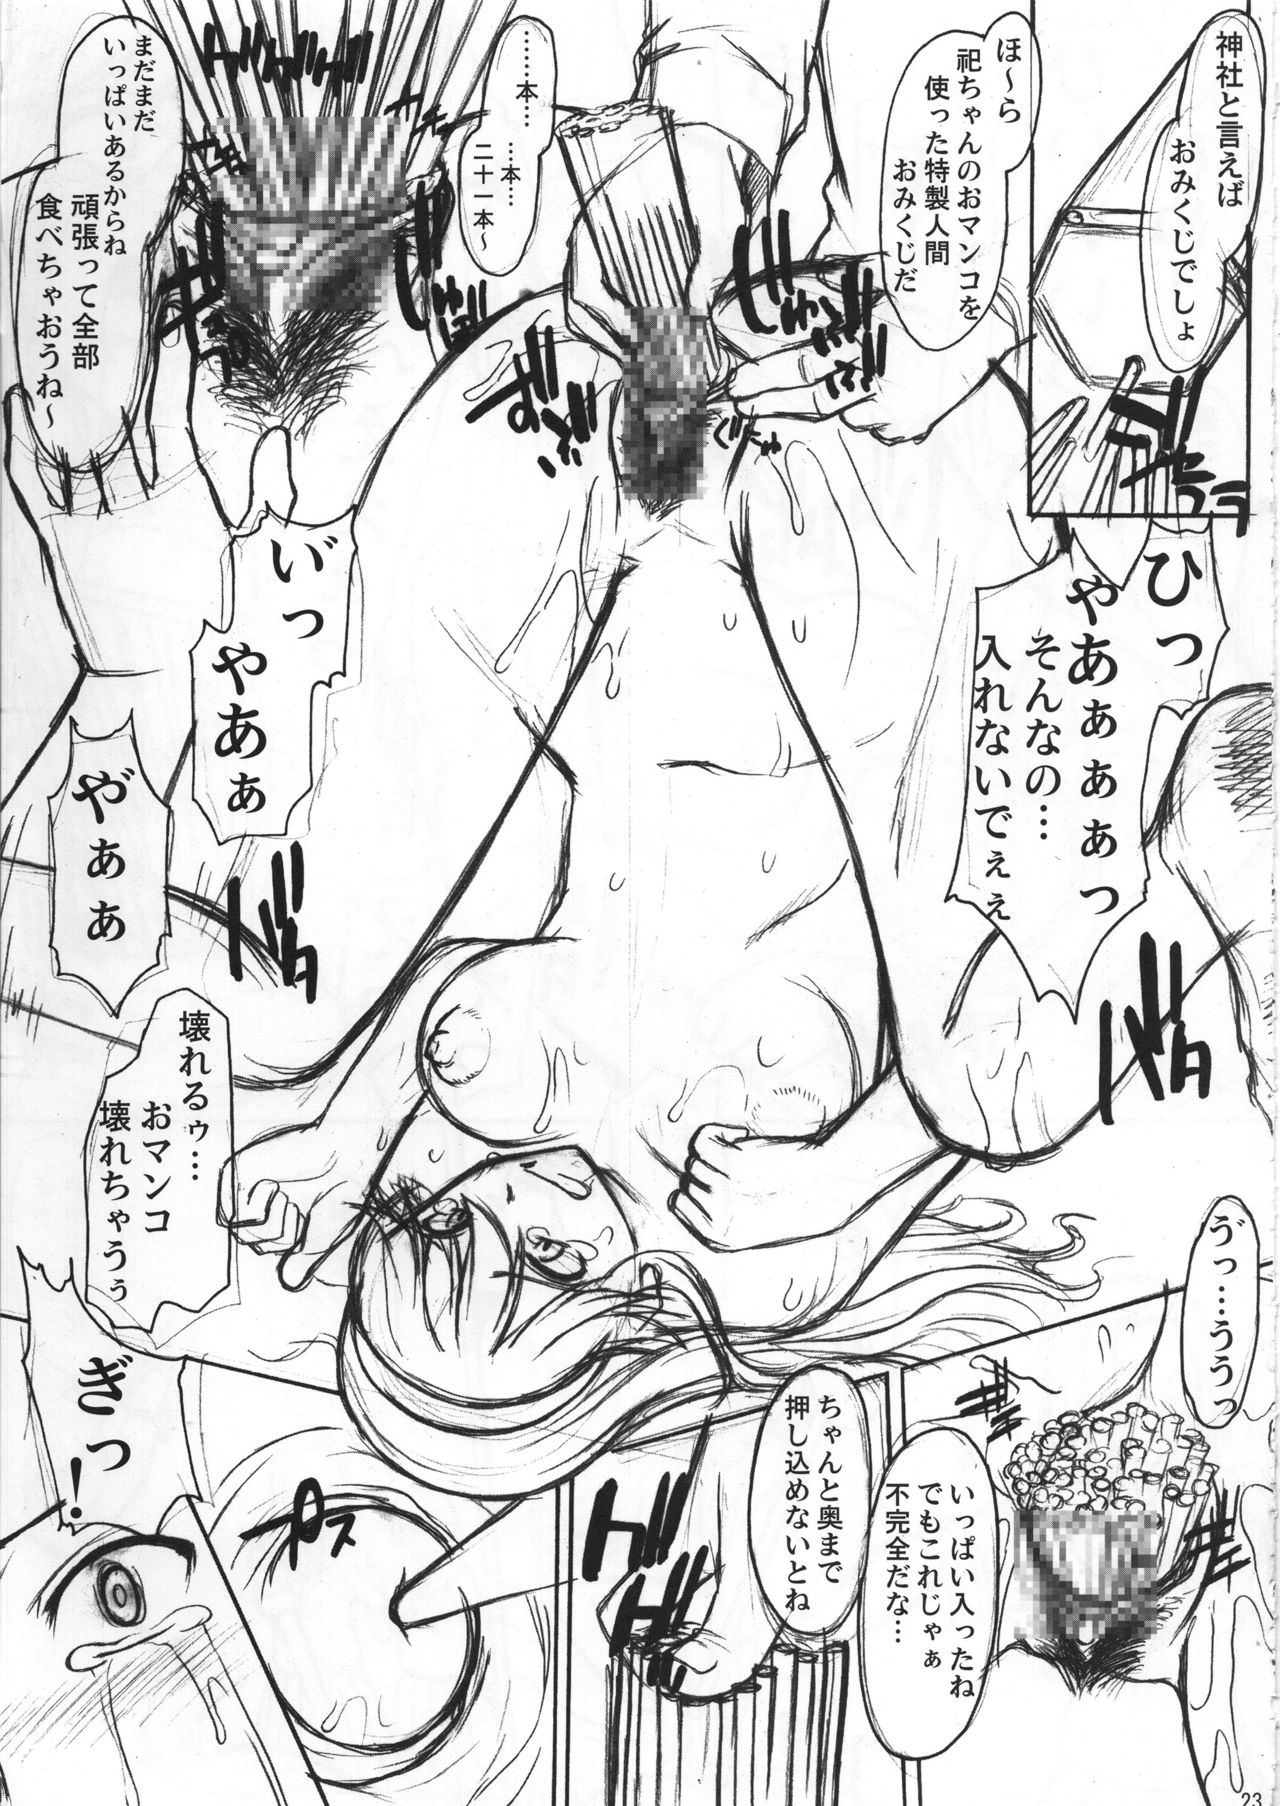 神社と言えば
おみくじでしょ
ほ～ら
祀ちゃんのおマンコを
使った特製人間
おみくじだ
………本…
…本…
二十一本～
まだまだ
いっぱいあるからね
頑張って全部
食べちゃおうね～
ひっ
やあぁぁぁっ
そんなの…
入れないでぇぇ
い゛っ
やあぁ
や゛ぁぁ
壊れるぅ…
おマンコ
壊れちゃうぅ
う゛っ…ううっ
いっぱい入ったね
でもこれじゃぁ
不完全だな…
ちゃんと奥まで
押し込めないとね
プス
ぎっ！
23